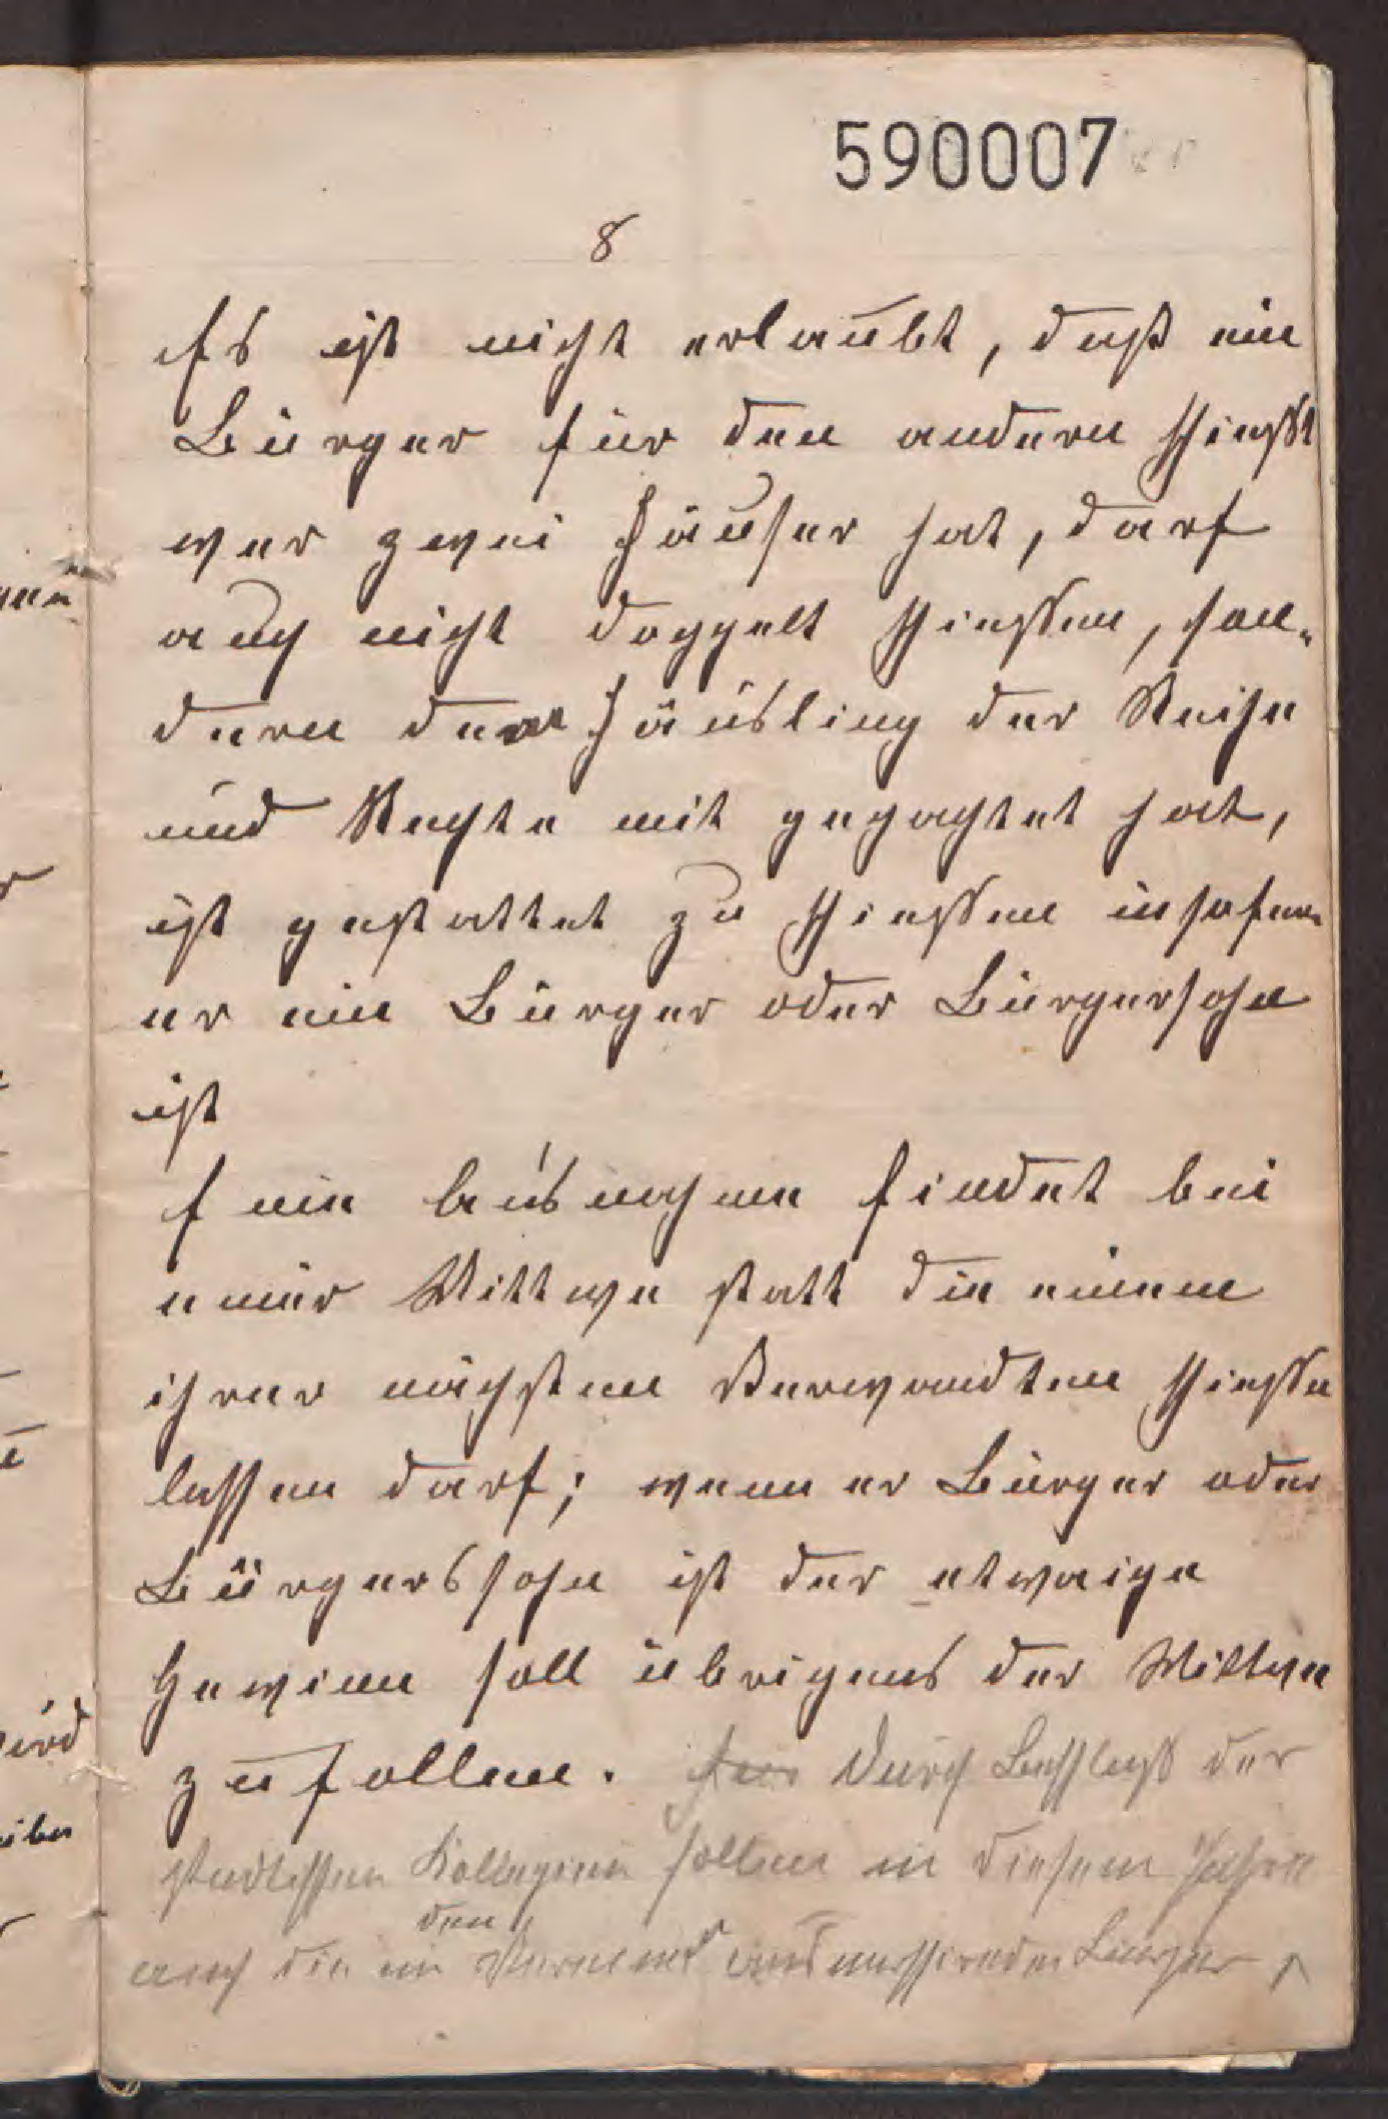 590007
8
Es ist nicht erlaubt, daß ein
Bürger für den andern schießt
wer zwei Häuser hat, darf
auch nicht doppelt schießen, son-
dern der Häusling der Reihe
und Rechte mit gepachtet hat,
ist gestattet zu schießen insofern
er ein Bürger oder Bürgersohn
ist
Eine Ausnahme findet bei
einer Wittwe statt die einem
ihrer nächsten Verwandten schießen
lassen darf; wenn er Bürger oder
Bürgerssohn ist der etwaige
Gewinn soll übrigens der Wittwe
zufallen. Durch Beschluß der
städtischen Kollegien sollen in diesem Jahre
den
auch die in ausmarschirenden Bürger